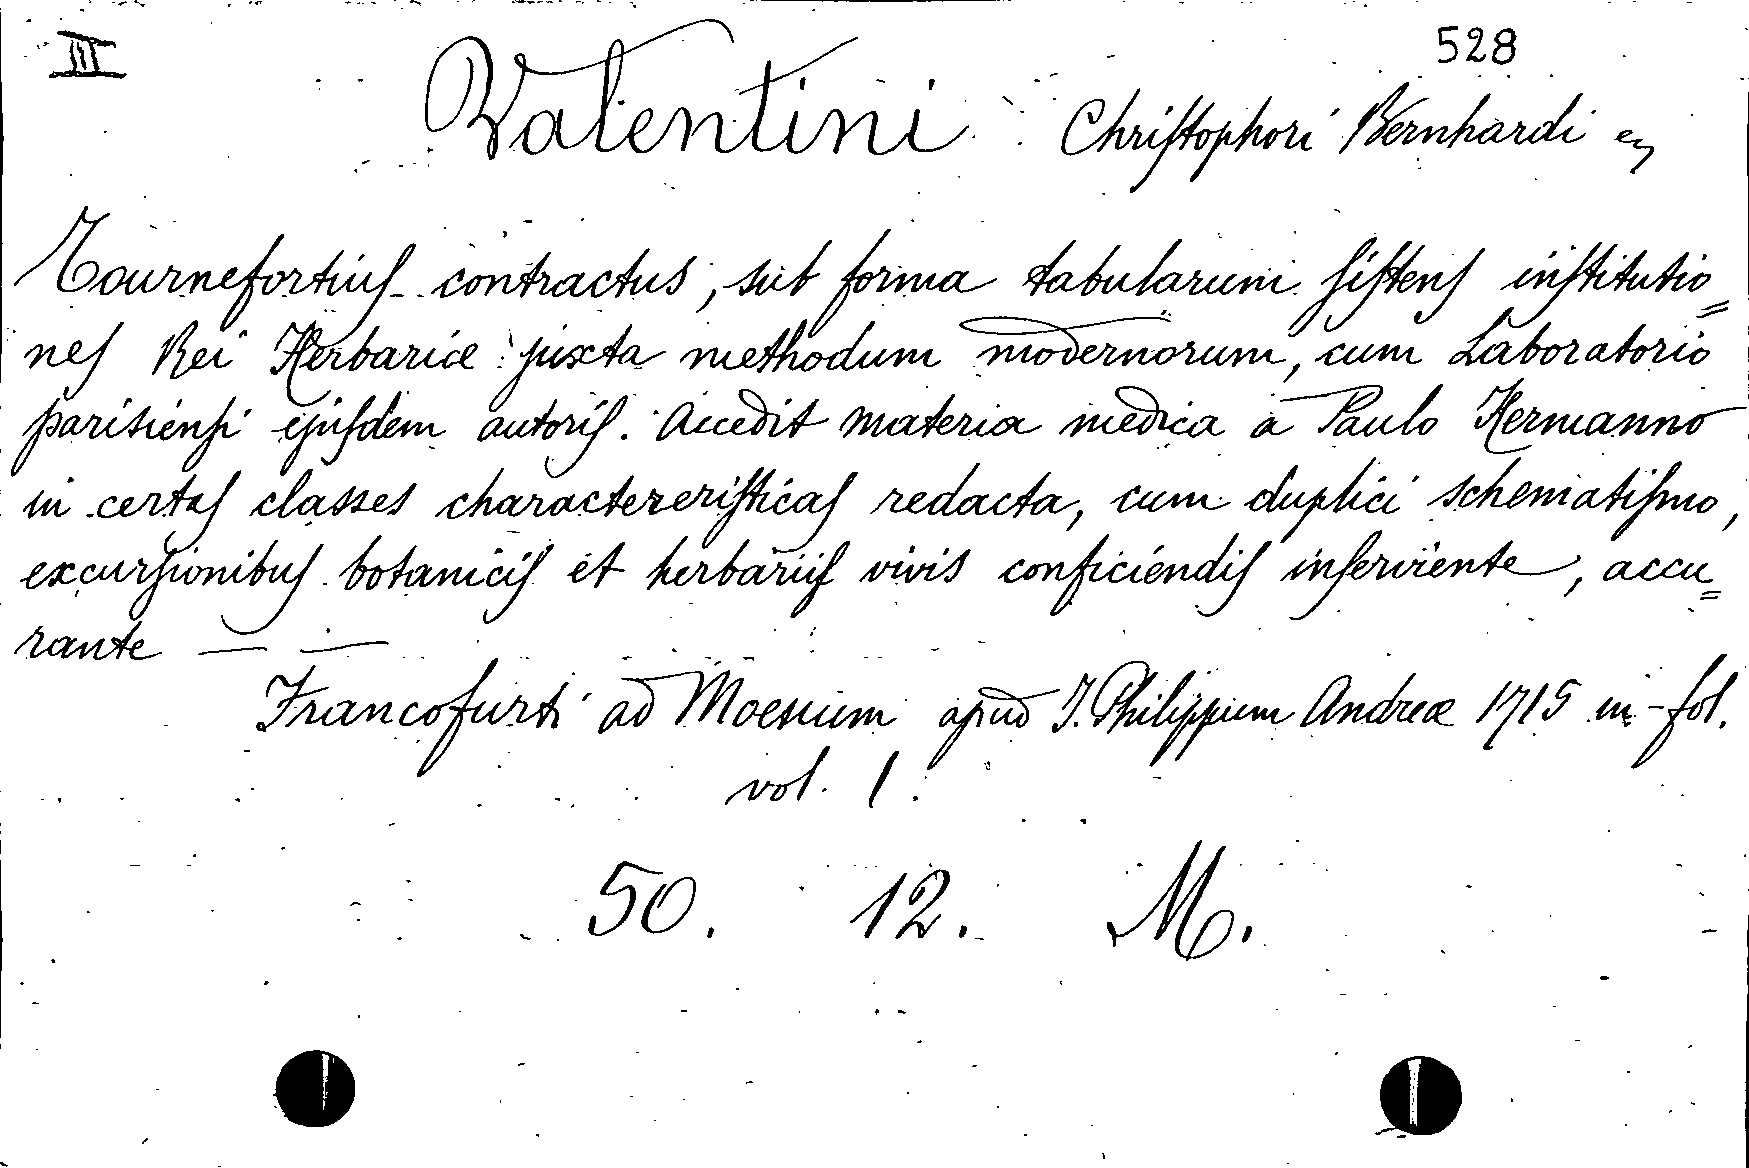 III
528
Valentini Chriſtophori Bernhardi
Tournefortiuſ contractus, sub forma tabularum ſiſtenſ inſtitutio=
neſ Rei Herbariæ juxta methodum modernorum, cum Laboratorio
parisienſi ejuſdem autoriſ. Accedit materia medica a Paulo Hermanno
in certaſ classes charactereriſticaſ redacta, cum duplici schematiſmo,
excurſionibuſ botaniciſ et herbariiſ vivis conficiendiſ inſerviente, accu=
rante — —
Francofurti ad Moenum apud J. Philippum Andreæ 1715 in-fol.
vol. 1.
50. 12. M.